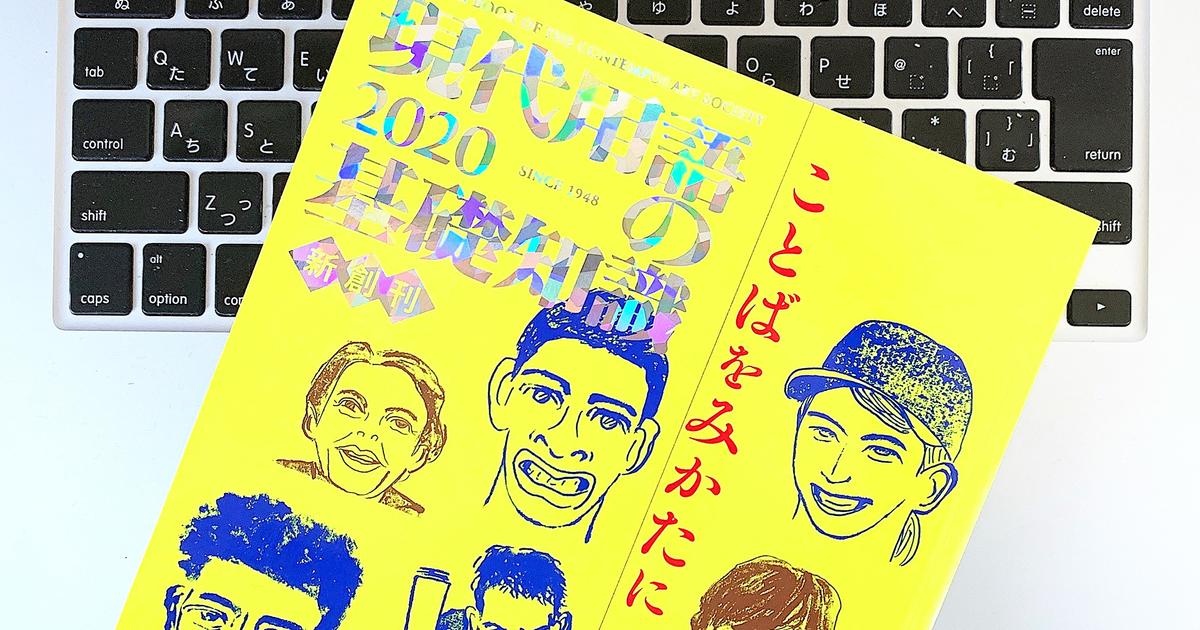 BOOK OF THE CONTEMPORARY SOCIETY
現代用語の
2020
SINCE 1948
基礎知識
新創刊
ことばをみかたに
delete
tab
Q
た
W
て
E
い
O
ら
P
せ
@
enter
return
control
A
ち
S
と
む
shift
Z
つ
っ
shift
caps
alt
option